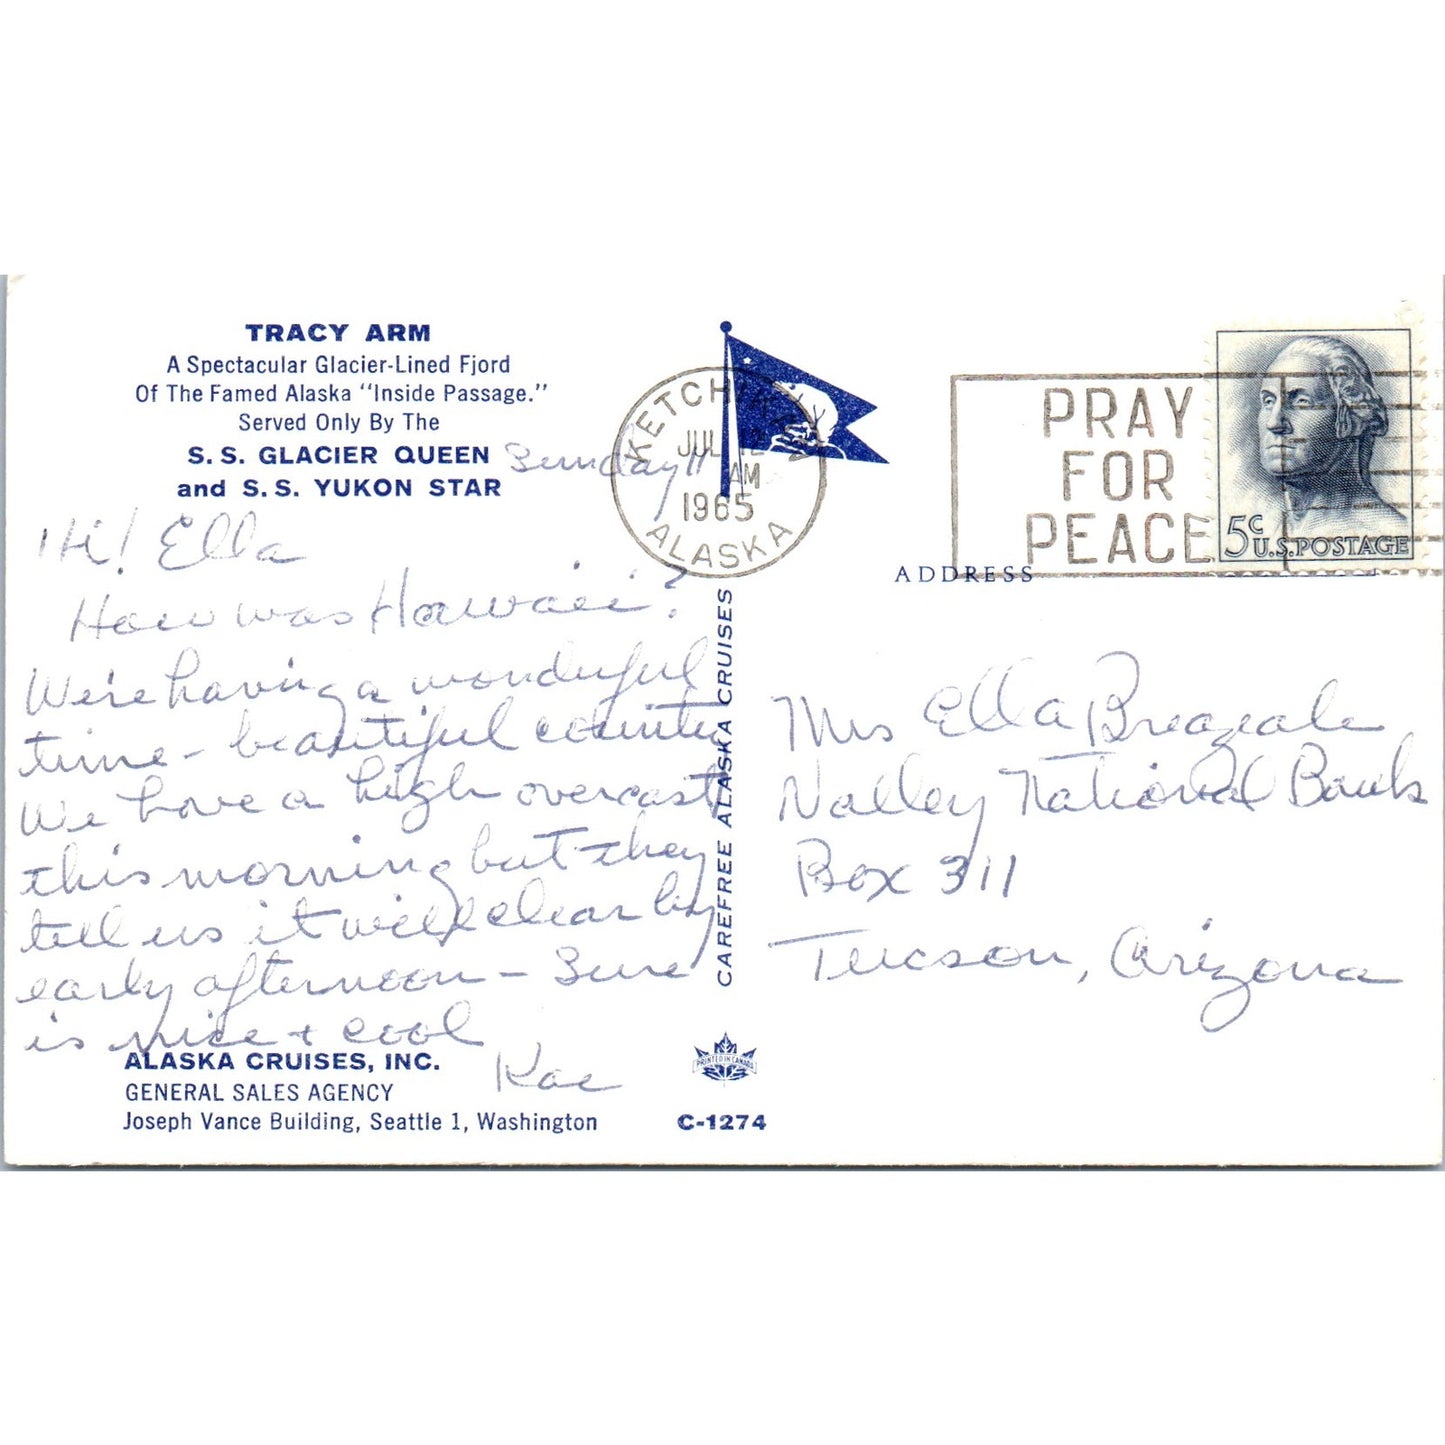 TRACY ARM
A Spectacular Glacier-Lined Fjord
Of The Famed Alaska "Inside Passage."
Served Only By The
S. S. GLACIER QUEEN
and S. S. YUKON STAR
Sunday 11
Hi! Ella
How was Hawaii?
We're having a wonderful
time - beautiful country
We have a high overcast
this morning but they
tell us it will clear by
early afternoon - Sure
is nice + cool
Kae
ALASKA CRUISES, INC.
GENERAL SALES AGENCY
Joseph Vance Building, Seattle 1, Washington
C-1274
PRINTED IN CANADA
CAREFREE ALASKA CRUISES
KETCHIKAN
JUL 12
AM
1965
ALASKA
PRAY
FOR
PEACE
5c
U.S. POSTAGE
ADDRESS
Mrs Ella Breazeale
Valley National Bank
Box 311
Tucson, Arizona